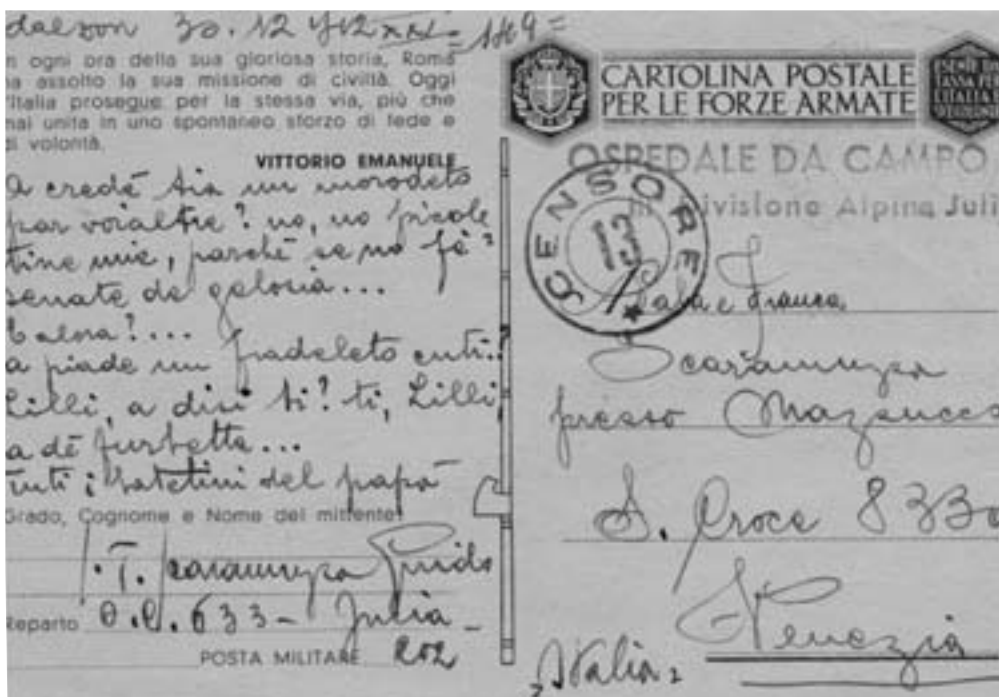 dal don 30.12 942 XXI - 149 =
n ogni ora della sua gloriosa storia, Roma
na assolto la sua missione di civiltà. Oggi
'Italia prosegue per la stessa via, più che
mai unita in uno spontaneo sforzo di fede e
di volontà.
VITTORIO EMANUELE
a credè sia un morodeto
par voialtre? no, no picole
tine mie, parchè se no fè
senate de gelosia...
E alora?...
a piade un fradeleto cuti..?
Lilli, a disi ti? ti, Lilli,
a dè furbetta...
Tuti i batetini del papà
Grado, Cognome e Nome del mittente
.T. Scaramuzza Guido
Reparto O.C. 633 - Julia -
POSTA MILITARE 202
CARTOLINA POSTALE
PER LE FORZE ARMATE
OSPEDALE DA CAMPO
Divisione Alpina Juli
CENSORE
e Franca
Scaramuzza
presso Mazzucco
S. Croce 833
Venezia
= Italia =